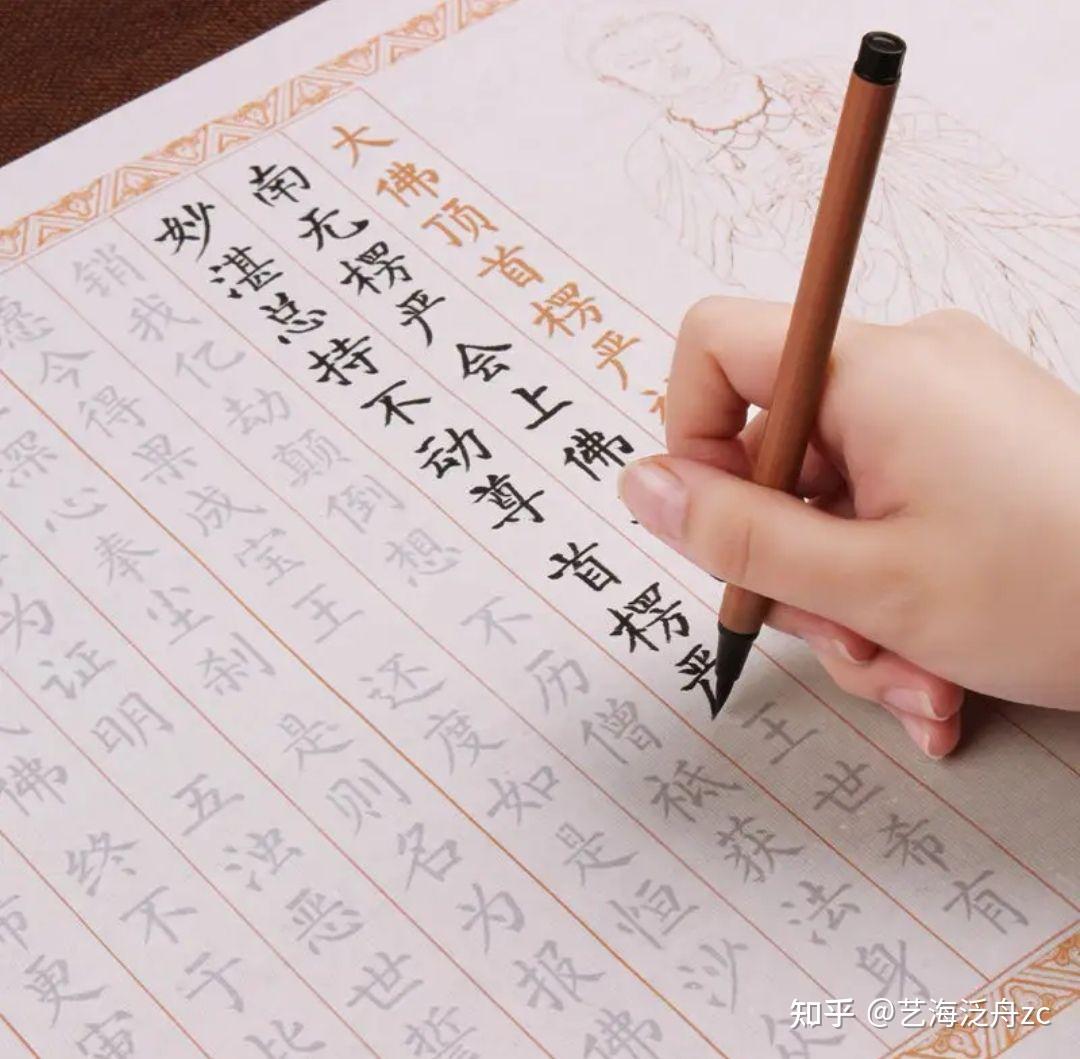 大佛顶首楞严
南无楞严会上佛
妙湛总持不动尊 首楞严王世希有
销我亿劫颠倒想 不历僧祇获法身
愿今得果成宝王 还度如是恒沙众
深心奉尘刹 是则名为报佛
为证明 五浊恶世誓
佛 终不于此
希更审
知乎 @艺海泛舟zc